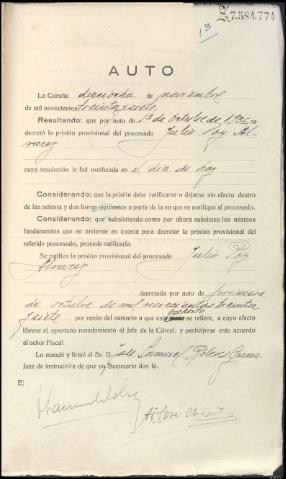 7.584.774
13
AUTO
La Coruña dieciocho de noviembre
de mil novecientos treinta y siete
Resultando: que por auto de 1º de octubre de 1937 se
decretó la prisión provisional del procesado Julio Rey Al-
varez
cuya resolución le fué notificada en el día de hoy
Considerando: que la prisión debe ratificarse o dejarse sin efecto dentro
de las setenta y dos horas siguientes a partir de la en que se notifique al procesado.
Considerando: que subsistiendo como por ahora subsisten los mismos
fundamentos que se tuvieron en cuenta para decretar la prisión provisional del
referido procesado, procede ratificarla.
Se ratifica la prisión provisional del procesado Julio Rey
Alvarez
decretada por auto de primero
de octubre de mil novecientos treinta y
siete por razón del sumario a que este se refiere, a cuyo efecto
líbrese el oportuno mandamiento al Jefe de la Cárcel, y participese este acuerdo
al señor Fiscal.
Lo mandó y firmó el Sr. D. José Samuel Roberes García
Juez de instrucción de que yo Secretario doy fé.